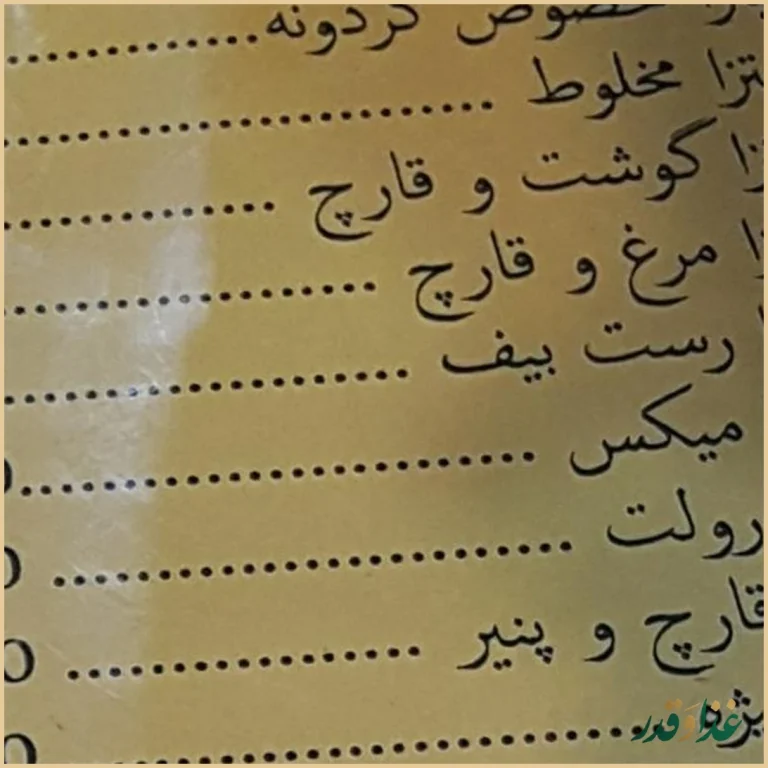 مخصوص گردونه
مخلوط
گوشت و قارچ
مرغ و قارچ
رست بیف
میکس
رولت
قارچ و پنیر
غذا قدر